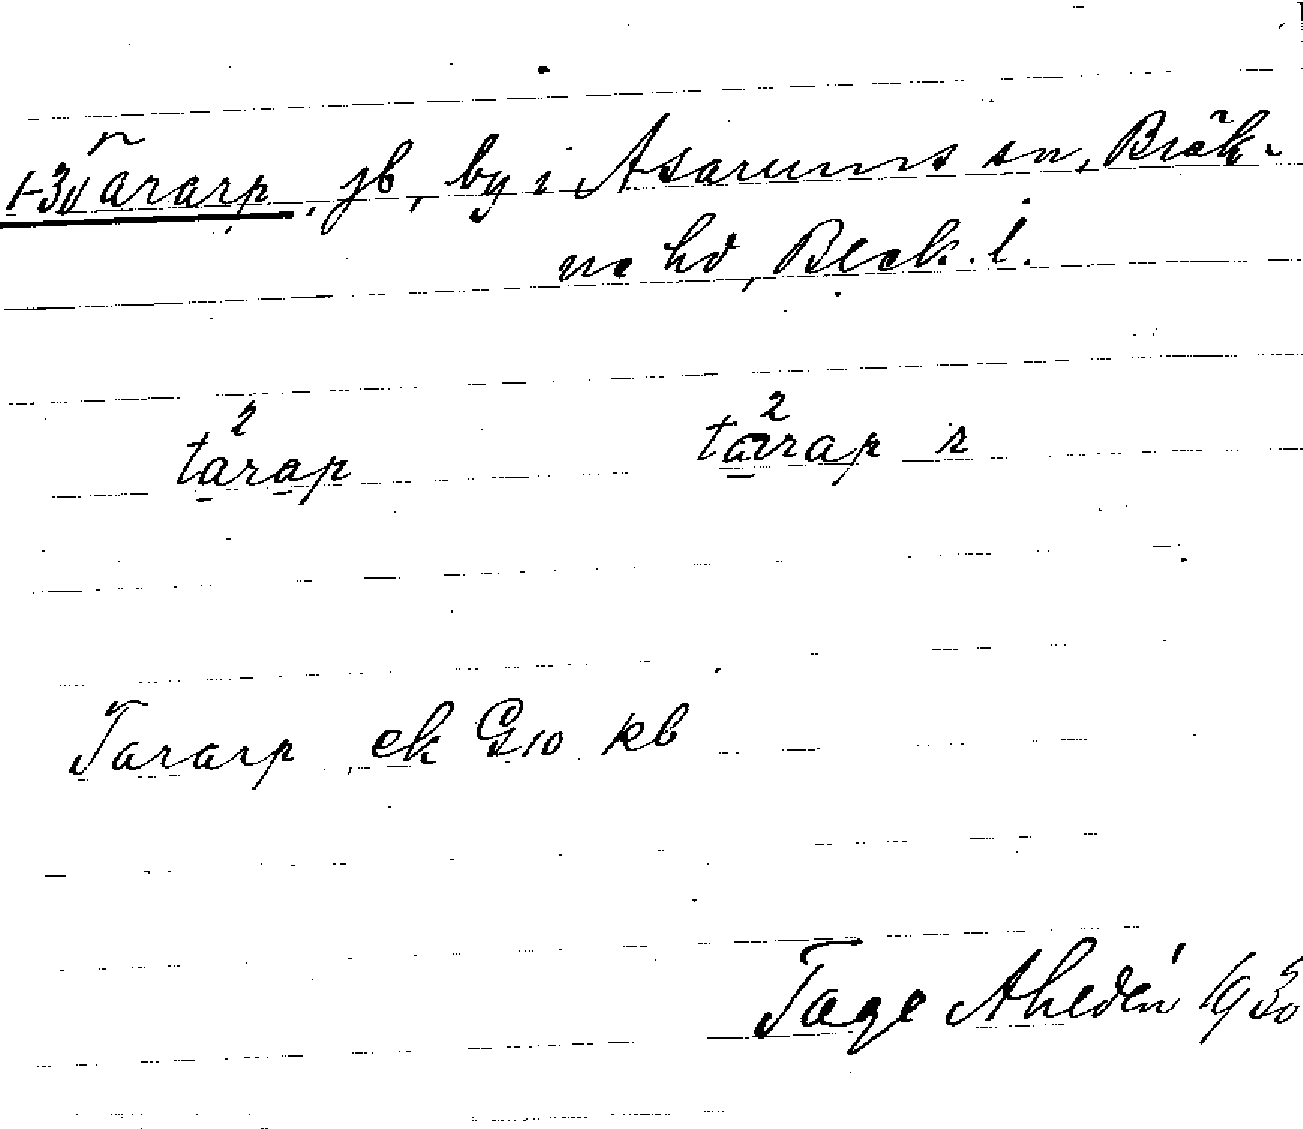 1-30 Tararp, jb, by i Asarums sn, Bräk-
ne hd, Blek. l.
ta²rap ta²rap r
Tararp, ek G10 kb
Tage Ahldén 1930